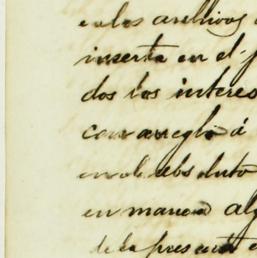 en los archivos
inserta en el
dos los interes
con arreglo á
en absoluto
en manera alg
de la presente